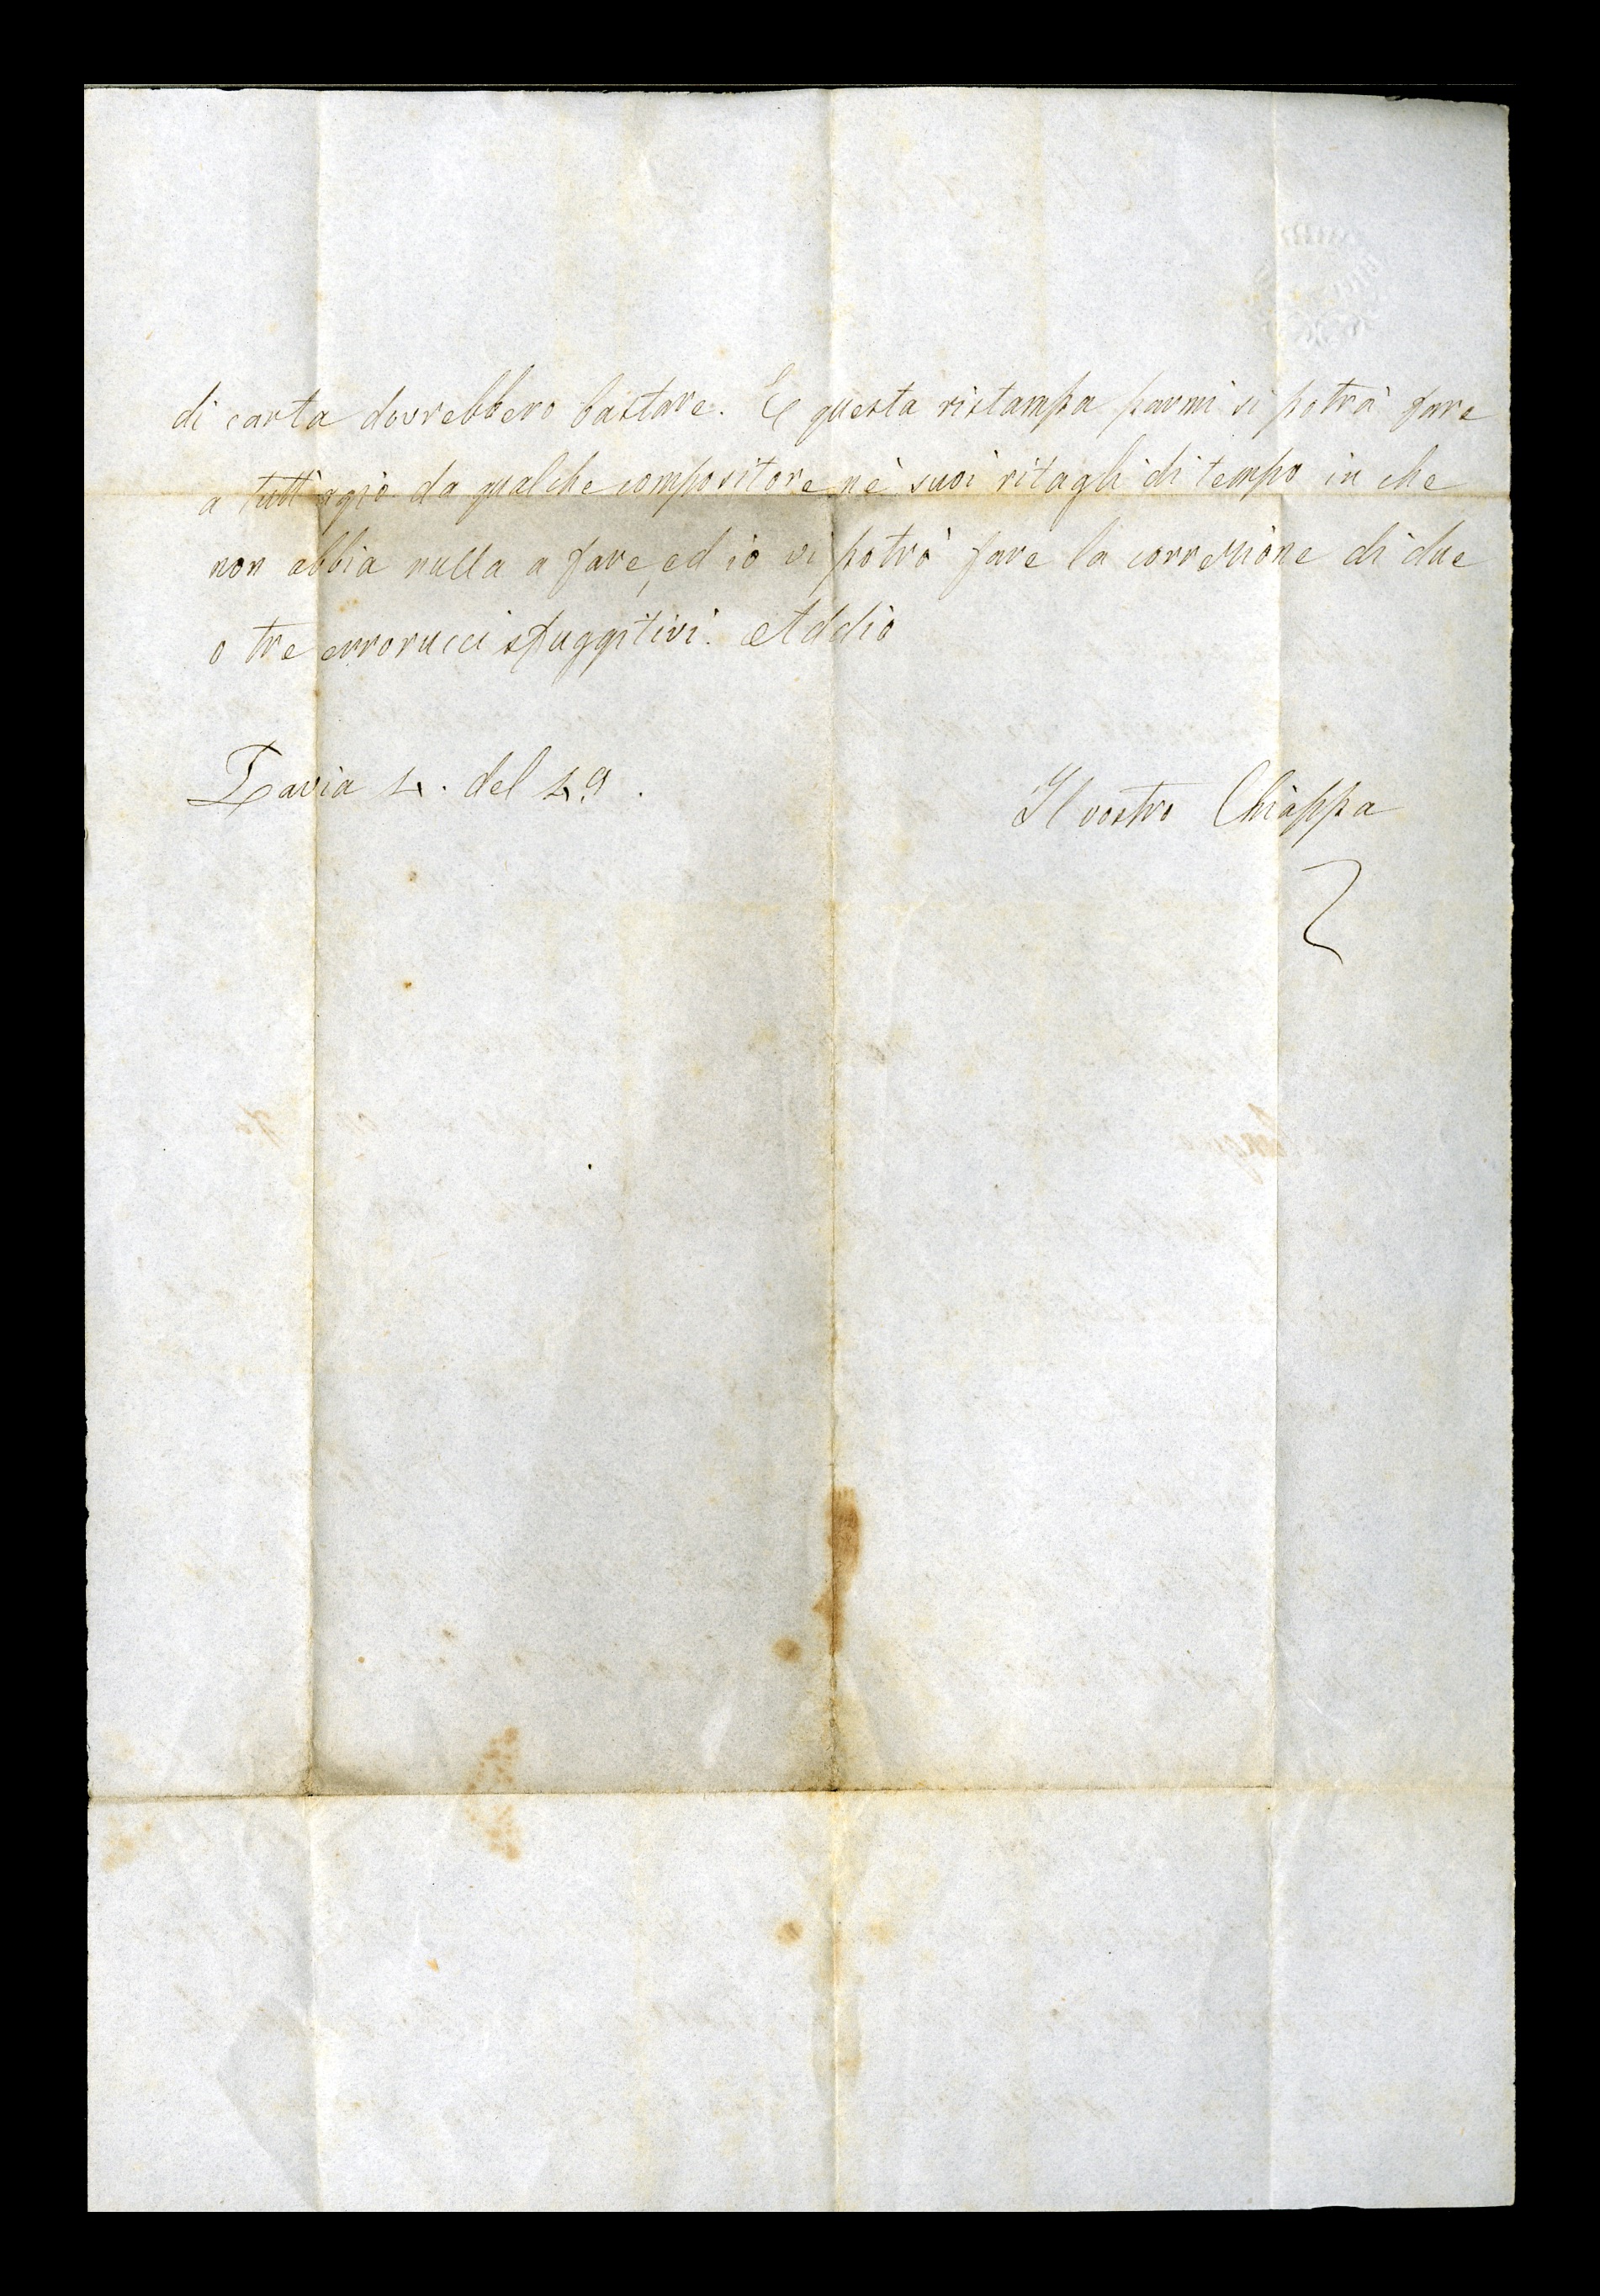 di carta dovrebbero bastare. E questa ristampa parmi si potrà fare
a tutt'agio da qualche compositore nè suoi ritagli di tempo in che
non abbia nulla a fare, ed io vi potrò fare la correzione di due
o tre errorucci sfuggitivi. Addio
Pavia 4. del 49.
Il vostro Chiappa